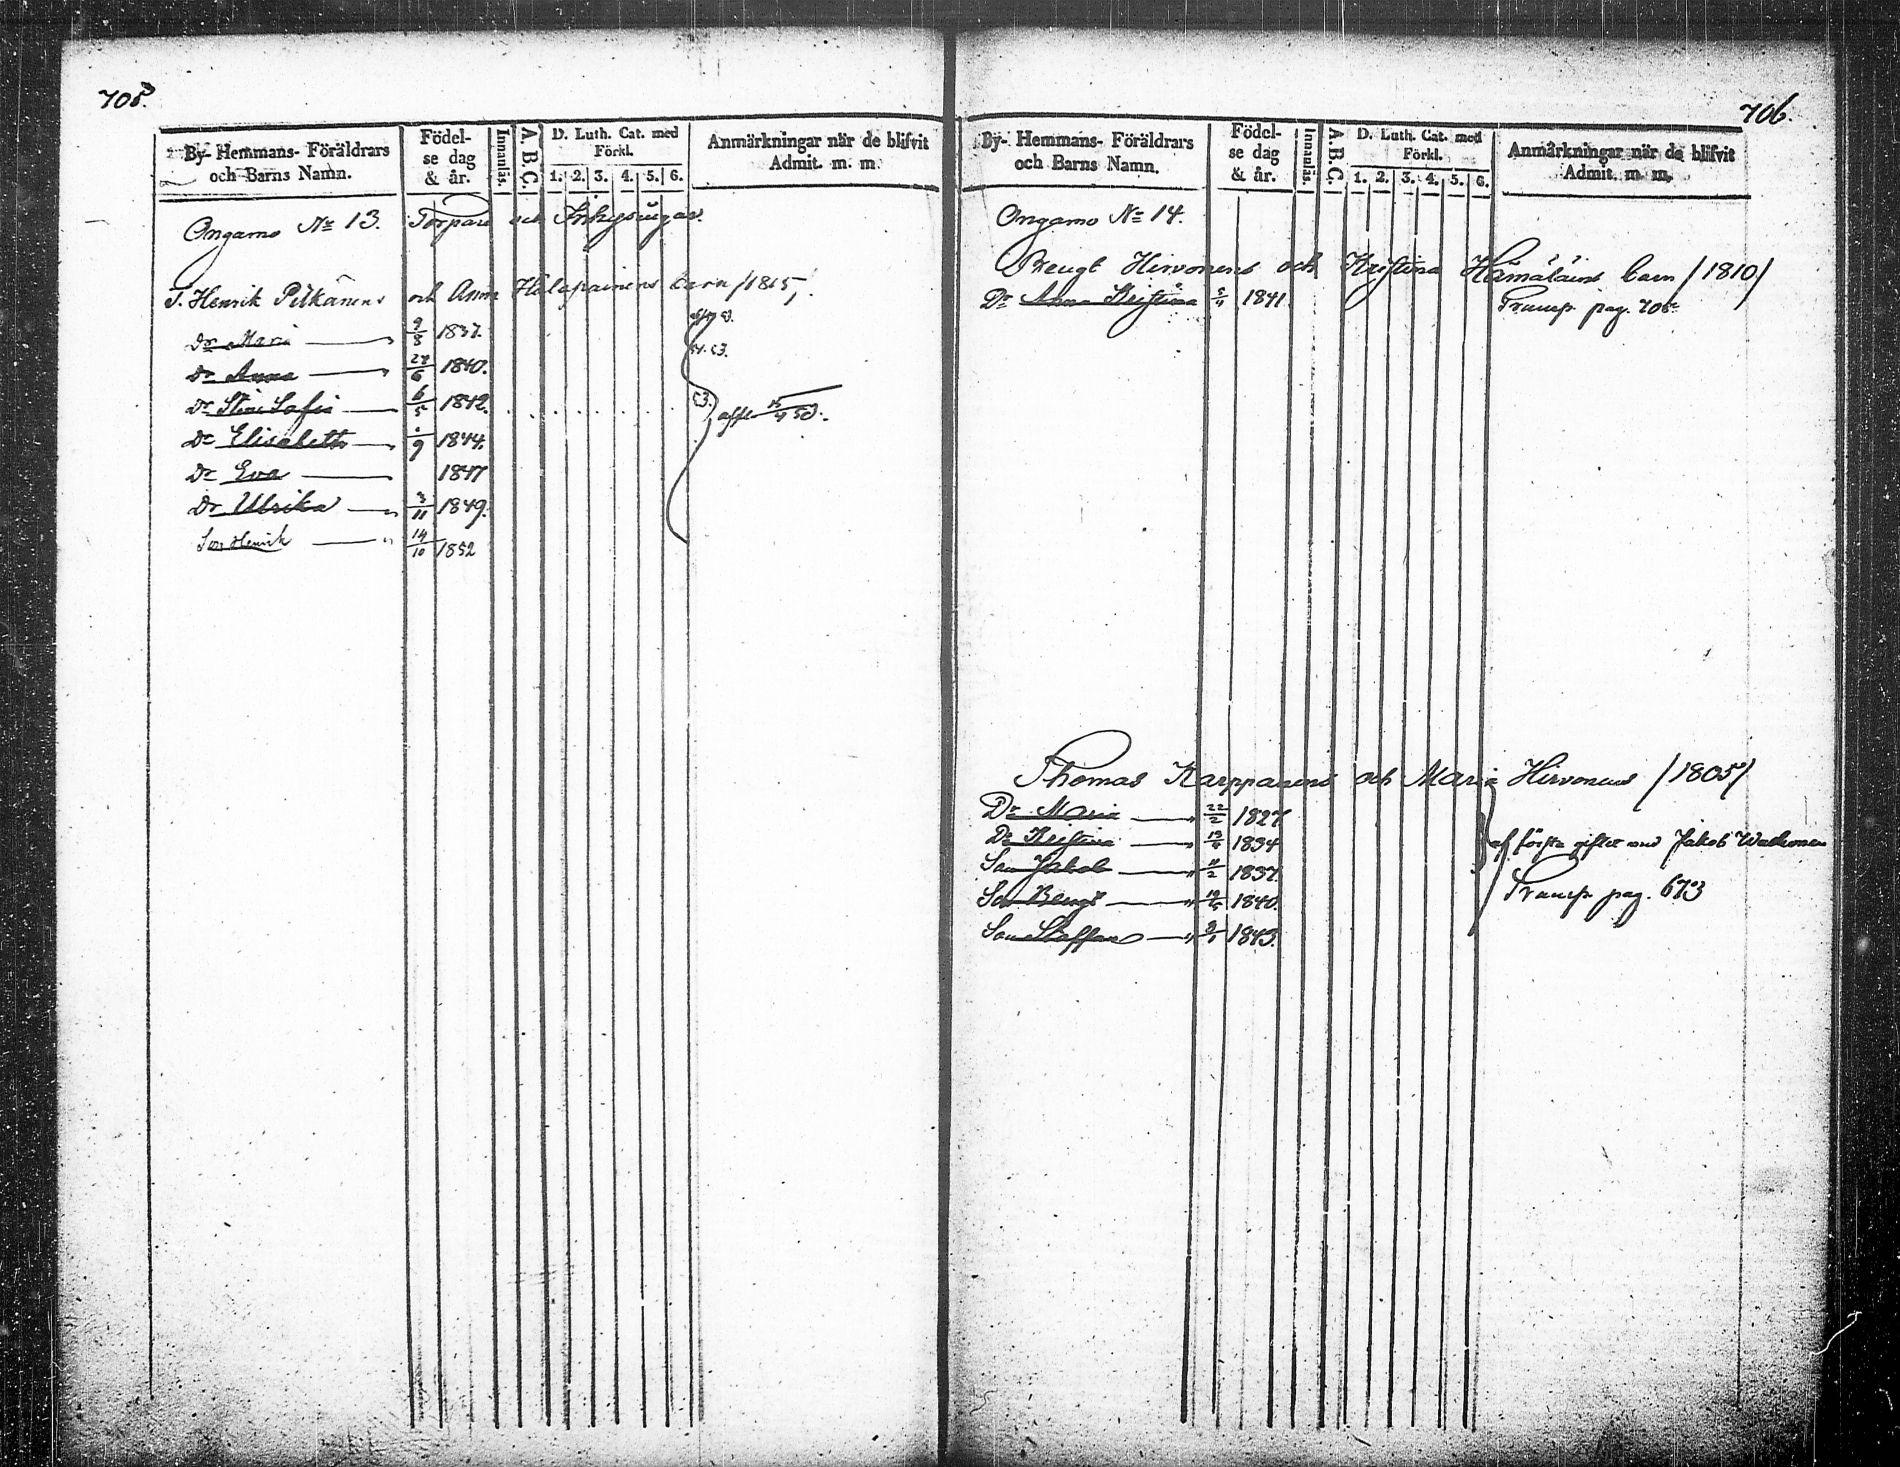 705.
By- Hemmans- Föräldrars och Barns Namn.
Födelse dag & år.
Innanläs.
A. B. C.
D. Luth. Cat. med Förkl.
1. 2. 3. 4. 5. 6.
Anmärkningar när de blifvit Admit. m. m.
Ongamo No 13. Torpare och Inhysingar.
T. Henrik Pitkänens och Anna barn /1815/.
Dr Maria 9/8 1837.
Dr Anna 27/6 1840.
Dr Stina Sofia 6/5 1842.
Dr Elisabeth /9 1844.
Dr Eva 1847
Dr Ulrika 3/11 1849.
Son Henrik 14/10 1852
53.
706.
By- Hemmans- Föräldrars och Barns Namn.
Födelse dag & år.
Innanläs.
A. B. C.
D. Luth. Cat. med Förkl.
1. 2. 3. 4. 5. 6.
Anmärkningar när de blifvit Admit. m. m.
Ongamo No 14.
Bengt Hirvonens och Kristina Hämäläins barn /1810/
Dr Anna Kristina 1841.
Transp. pag. 705
Thomas Karppanens och Maria Hirvonens /1805/
Dr Maria 22/2 1827.
Dr Kristina 1834
Son Jakob 1837.
Son Bengt 1840.
Son Staffan 1843.
af första giftet med Jakob
Transp. pag. 673